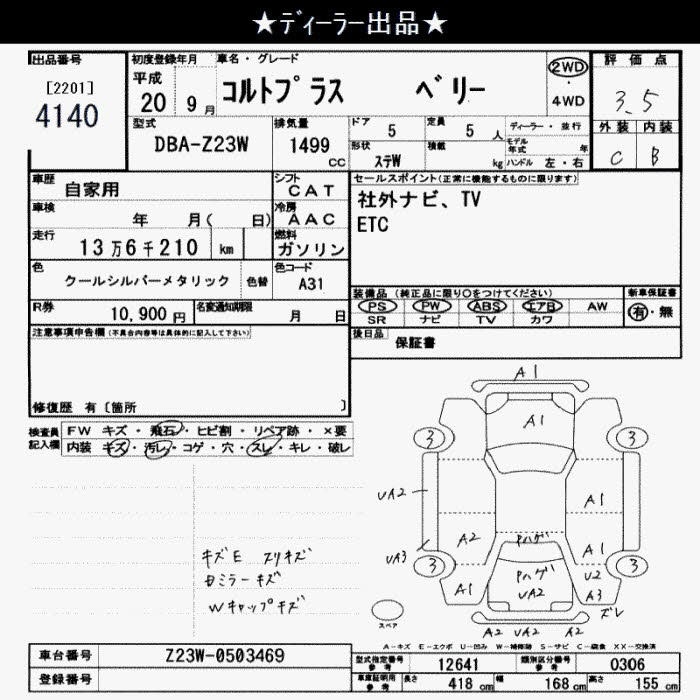 ★ディーラー出品★
出品番号
[2201]
4140
初度登録年月
平成
20 9月
車名・グレード
コルトプラス ベリー
2WD
・
4WD
評価点
3.5
外装 内装
C B
型式
DBA-Z23W
排気量
1499
cc
ドア
5
定員
5 人
形状
ステW
積載
kg
ディーラー・並行
モデル年式 年
ハンドル 左・右
車歴
自家用
シフト
CAT
車検
年 月( 日)
冷房
AAC
走行
13万6千210 km
燃料
ガソリン
色
クールシルバーメタリック
色替
色コード
A31
R券
10,900 円
名変通知期限
月 日
セールスポイント(正常に機能するものに限ります)
社外ナビ、TV
ETC
装備品 (純正品に限り○をつけてください)
PS PW ABS エアB AW
SR ナビ TV カワ
新車保証書
有・無
後日品
保証書
注意事項申告欄(不具合内容等は具体的に記入して下さい)
修復歴 有〔箇所 〕
検査員
記入欄
FW キズ・飛石・ヒビ割・リペア跡・×要
内装 キズ・汚レ・コゲ・穴・スレ・キレ・破レ
キズE スリキズ
ミラーキズ
Wキャップキズ
A1
A1
3 3
UA2
A1
A2
Pハゲ
A1
UA3
3 3
Pハゲ
UA2
U2
A1
A3
ズレ
A2 UA2 A2
スペア
A-キズ E-エクボ U-凹み W-補修跡 S-サビ C-腐食 XX-交換済
車台番号
Z23W-0503469
登録番号
型式指定番号
参考
12641
類別区分番号
参考
0306
車庫証明用
参考
長さ 418 cm 幅 168 cm 高さ 155 cm